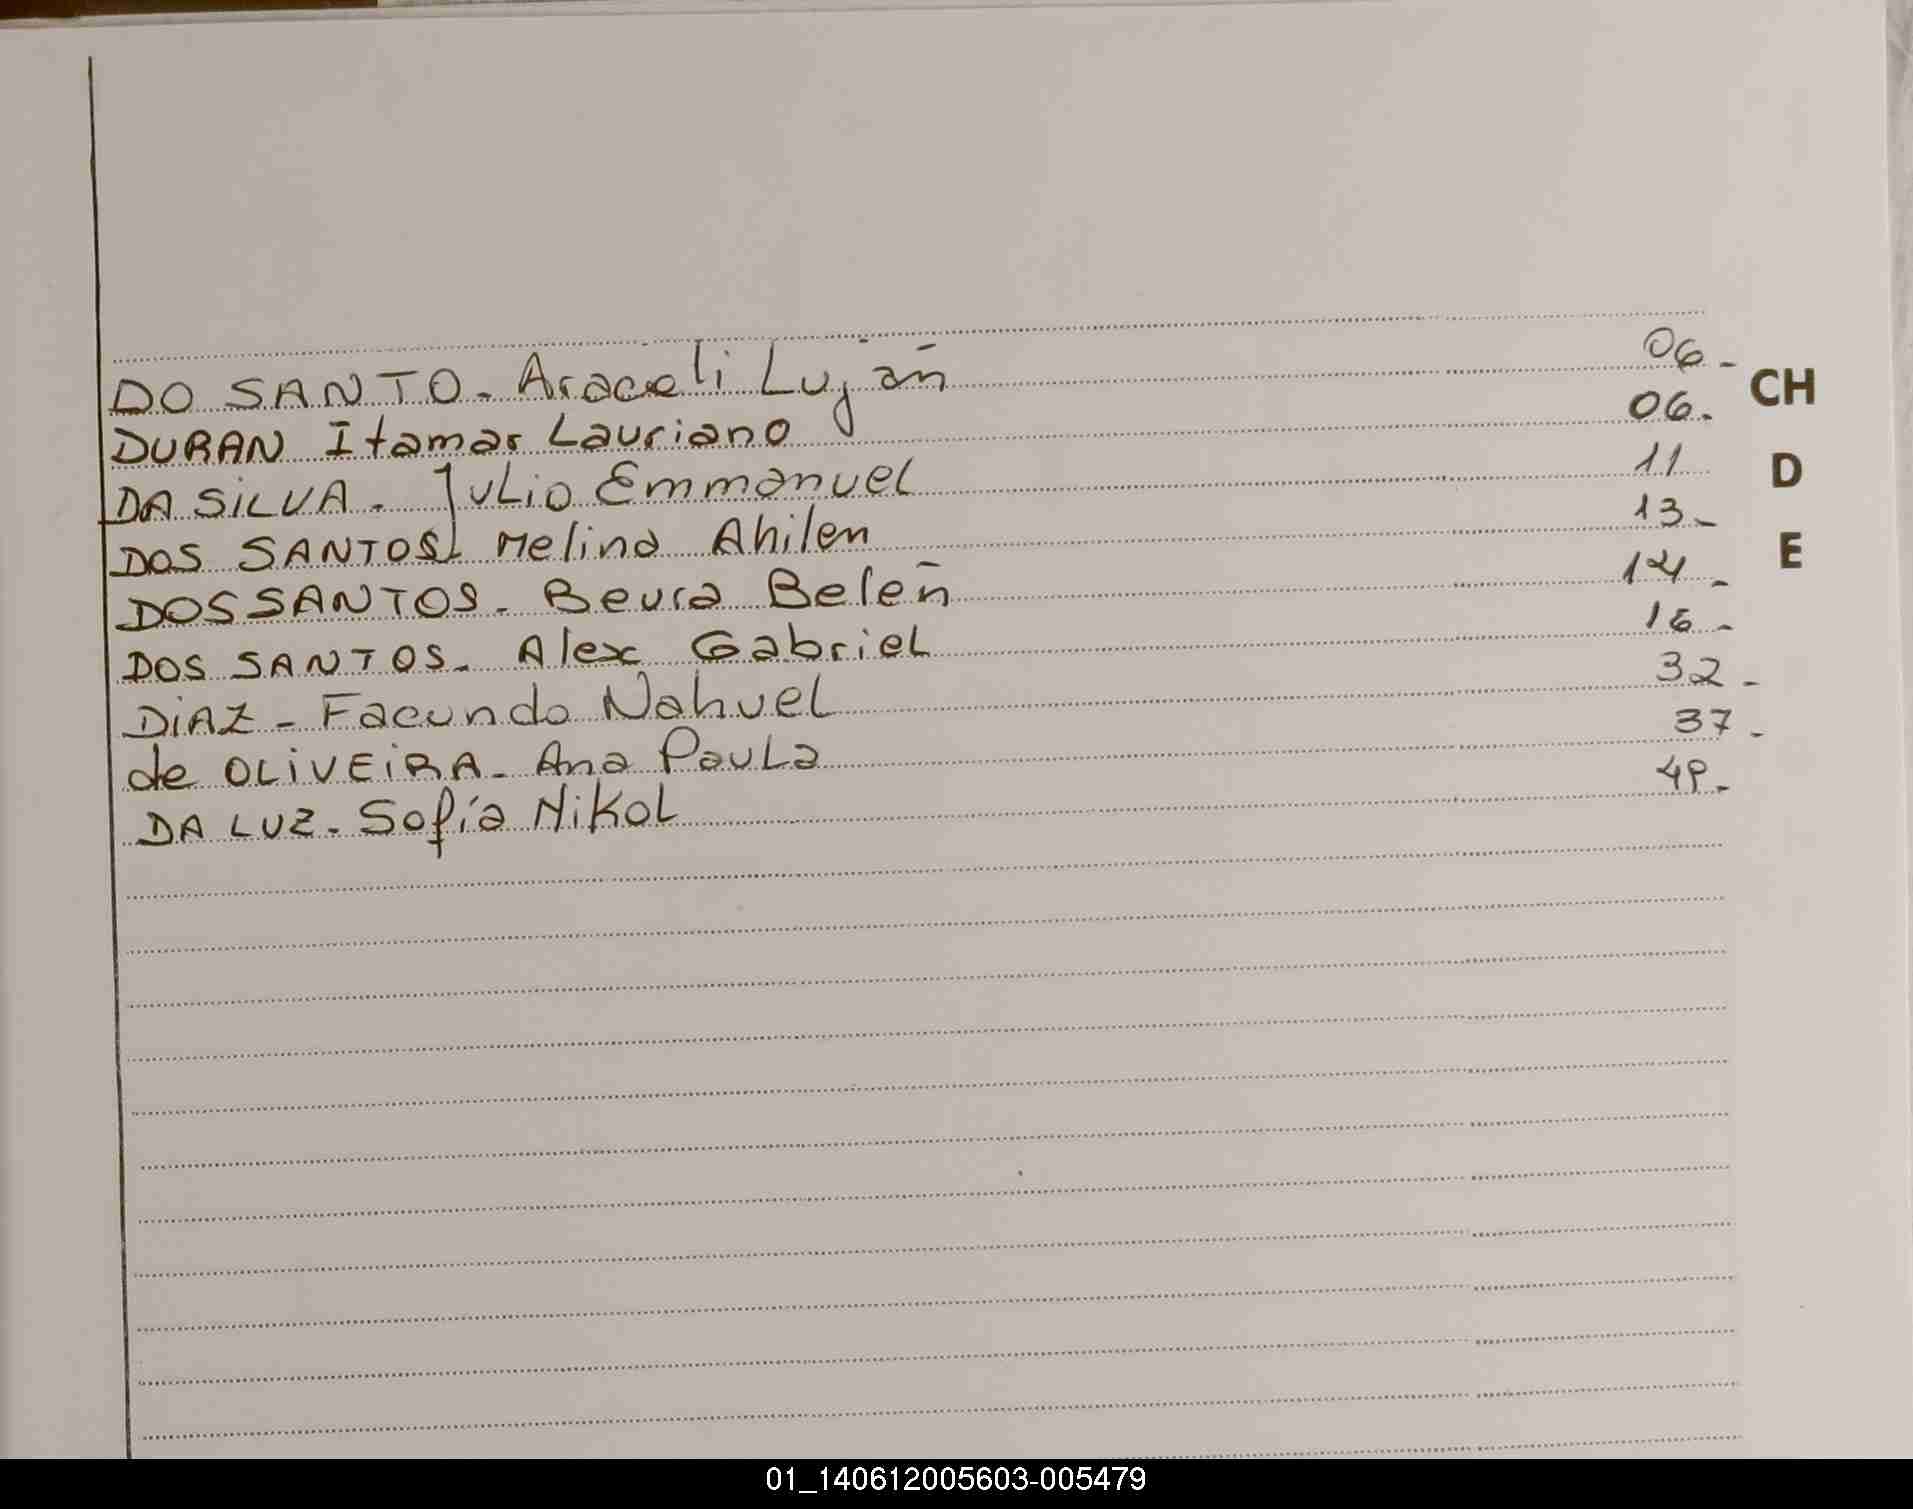 DO SANTO - Araceli Luján 06 -
DURAN Itamar Lauriano 06 -
DA SILVA - Julio Emmanuel 11
DOS SANTOS Melina Ahilen 13 -
DOS SANTOS - Belén 14 -
DOS SANTOS - Alex Gabriel 16 -
DIAZ - Facundo Nahuel 32 -
de OLIVEIRA - Ana Paula 37 -
DA LUZ - Sofía Nikol -
CH
D
E
01_140612005603-005479